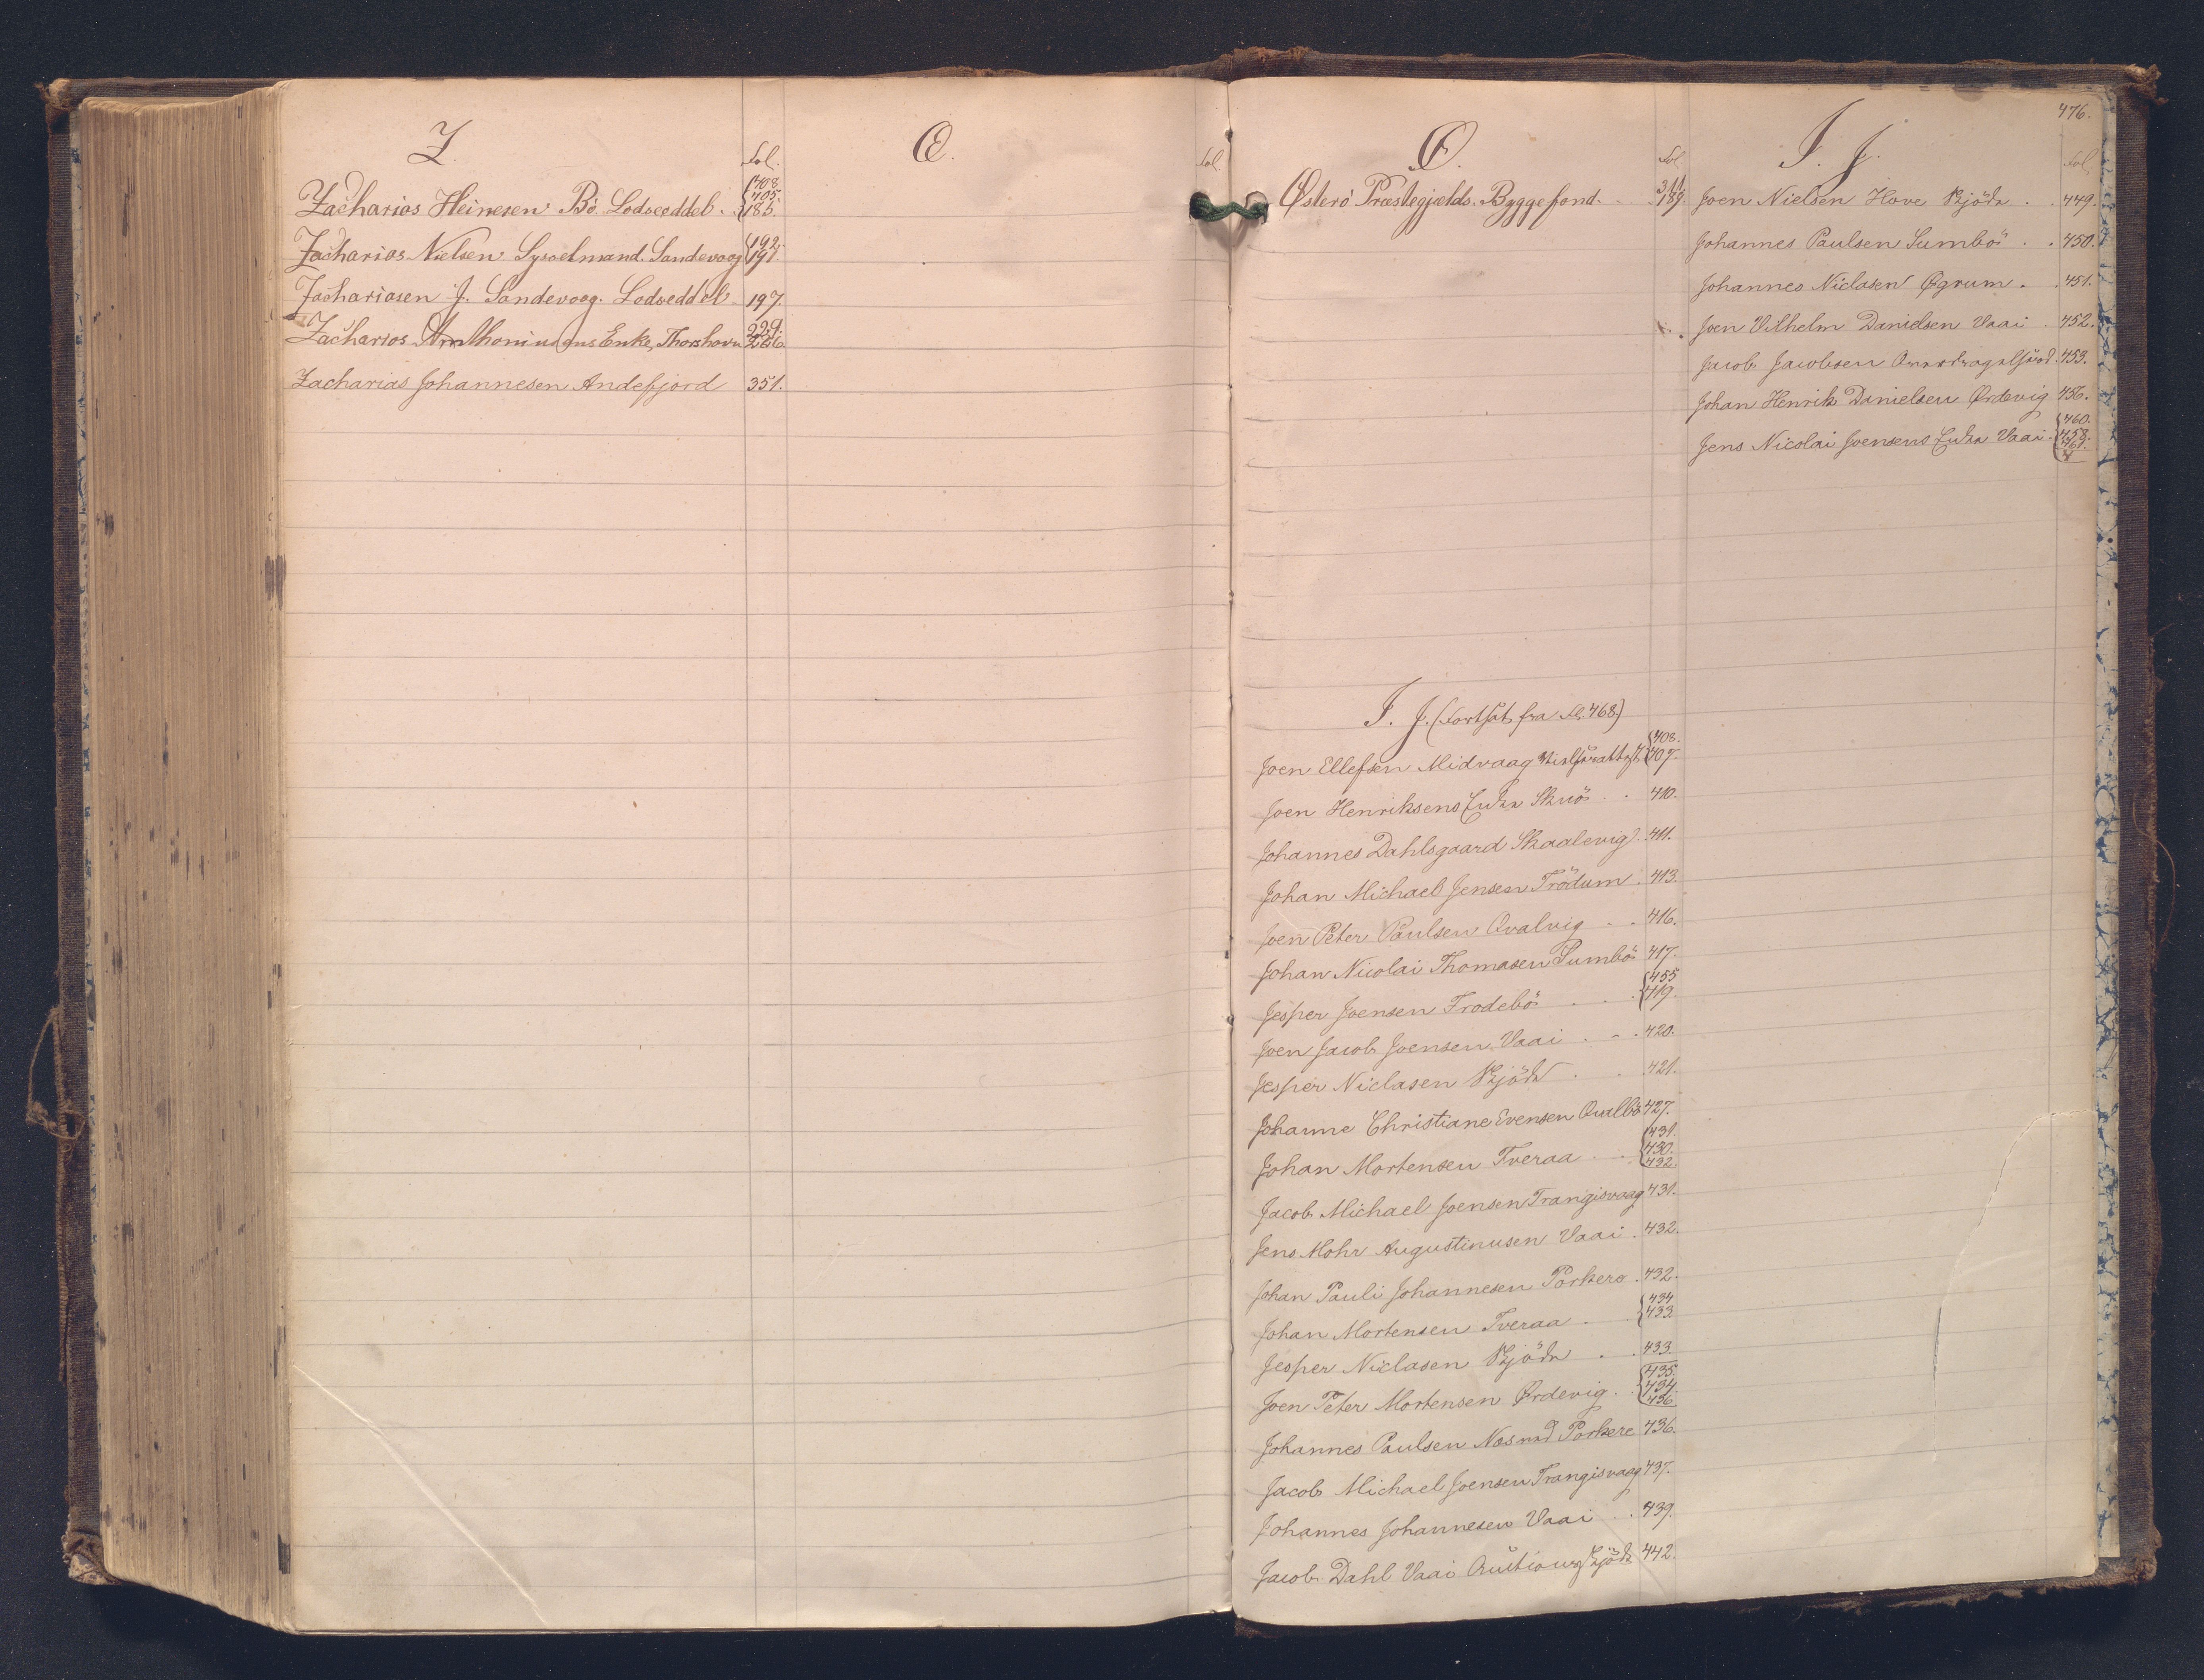 Z.
Fol.
Zacharias Heinesen Bö. Lodseddel. 408. 405. 185.
Zacharias Nielsen Sysselmand. Sandevaag 192. 191.
Zachariasen J. Sandevaag. Lodseddel 197.
Zacharias Anthoniusens Enke, Thorshavn 229. 226.
Zacharias Johannesen Andefjord 351.
Æ.
Fol.
Ø.
Fol.
Østerö Præstegjælds. Byggefond. 311. 189.
I. J. (Fortsat fra Fol. 468)
Joen Ellefsen Midvaag 408. 407.
Joen Henriksens Enke Skuö 410.
Johannes Dahlsgaard Skaalevig 411.
Johan Michael Jensen Frödum 413.
Joen Peter Paulsen Qvalvig 416.
Johan Nicolai Thomasen Sumbö 417.
Jesper Joensen Frodebö 455 419.
Joen Jacob Joensen Vaai 420.
Jesper Niclasen Skjöde 421.
Johanne Christiane Evensen Qvalbö 427.
Johan Mortensen Tveraa 431. 430. 432.
Jacob Michael Joensen Trangisvaag 431.
Jens Mohr Augustinusen Vaai 432.
Johan Pauli Johannesen Porkere 432.
Johan Mortensen Tveraa 434 433.
Jesper Niclasen Skjöde 433.
Joen Peter Mortensen Ördevig 435. 434. 436.
Johannes Paulsen Næs ved Porkere 436.
Jacob Michael Joensen Trangisvaag 437.
Johannes Johannesen Vaai 439.
Jacob Dahl Vaai Auctions Skjöde 442.
476.
I. J.
Fol.
Joen Nielsen Hove Skjöde 449.
Johannes Paulsen Sumbö 450.
Johannes Niclasen Øgrum 451.
Joen Vilhelm Danielsen Vaai 452.
Jacob Jacobsen 453.
Johan Henrik Danielsen Ördevig 456.
Jens Nicolai Joensens Enke Vaai 460. 458. 461.